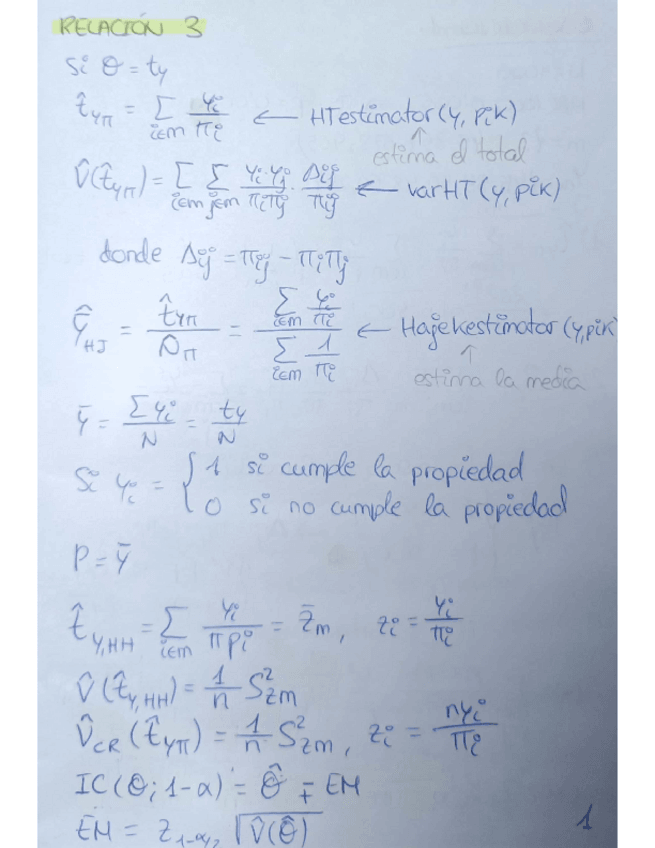 RELACIÓN 3
Si θ = ty
t̂yπ = Σ_{i∈m} yi/πi ← HTestimator(y, pik)
↑ estima el total
V̂(t̂yπ) = Σ_{i∈m} Σ_{j∈m} (yi·yj)/(πiπj) · Δij/πij ← varHT(y, pik)
donde Δij = πij − πiπj
ŷ̄_HJ = t̂yπ/N̂π = (Σ_{i∈m} yi/πi)/(Σ_{i∈m} 1/πi) ← Hajekestimator(y,pik)
↑ estima la media
ȳ = Σyi/N = ty/N
Si yi = { 1 si cumple la propiedad
0 si no cumple la propiedad
P = ȳ
t̂y,HH = Σ_{i∈m} yi/πpi = z̄m, zi = yi/πi
V̂(t̂y,HH) = 1/n S²zm
V̂CR(t̂yπ) = 1/n S²zm, zi = nyi/πi
IC(θ; 1-α) = θ̂ ∓ EM
EM = z_{1-α/2} √V̂(θ̂)
1